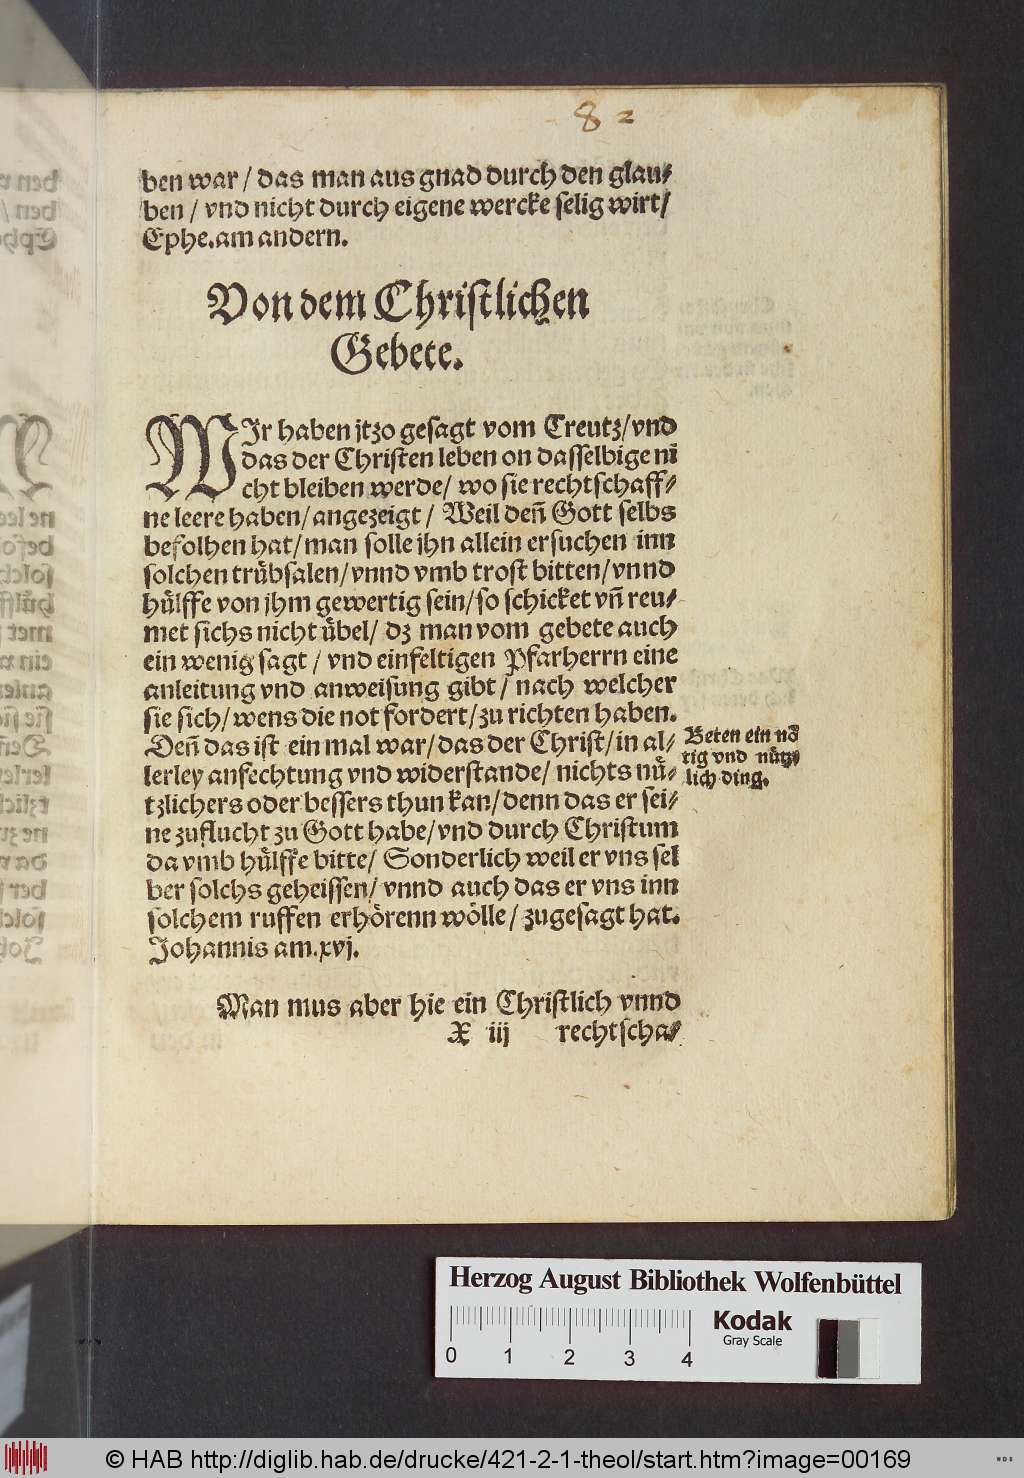 82
ben war / das man aus gnad durch den glau⸗
ben / vnd nicht durch eigene wercke selig wirt/
Ephe.am andern.
Von dem Christlichen
Gebete.
WJr haben jtzo gesagt vom Creutz/vnd
das der Christen leben on dasselbige ni
cht bleiben werde/ wo sie rechtschaff⸗
ne leere haben/angezeigt / Weil deñ Gott selbs
befolhen hat/man solle jhn allein ersuchen inn
solchen trübsalen/vnnd vmb trost bitten/vnnd
hülffe von jhm gewertig sein/so schicket vñ reu⸗
met sichs nicht übel/ dz man vom gebete auch
ein wenig sagt / vnd einfeltigen Pfarherrn eine
anleitung vnd anweisung gibt / nach welcher
sie sich/wens die not fordert/zu richten haben.
Deñ das ist ein mal war/das der Christ/in al⸗
lerley anfechtung vnd widerstande/ nichts nü⸗
tzlichers oder bessers thun kan/denn das er sei⸗
ne zuflucht zu Gott habe/vnd durch Christum
da vmb hülffe bitte/ Sonderlich weil er vns sel
ber solchs geheissen/ vnnd auch das er vns inn
solchem ruffen erhörenn wölle / zugesagt hat.
Johannis am.xvj.
Beten ein nö
tig vnd nütz⸗
lich ding.
Man mus aber hie ein Christlich vnnd
X iij rechtscha⸗
Herzog August Bibliothek Wolfenbüttel
0 1 2 3 4
Kodak
Gray Scale
© HAB http://diglib.hab.de/drucke/421-2-1-theol/start.htm?image=00169